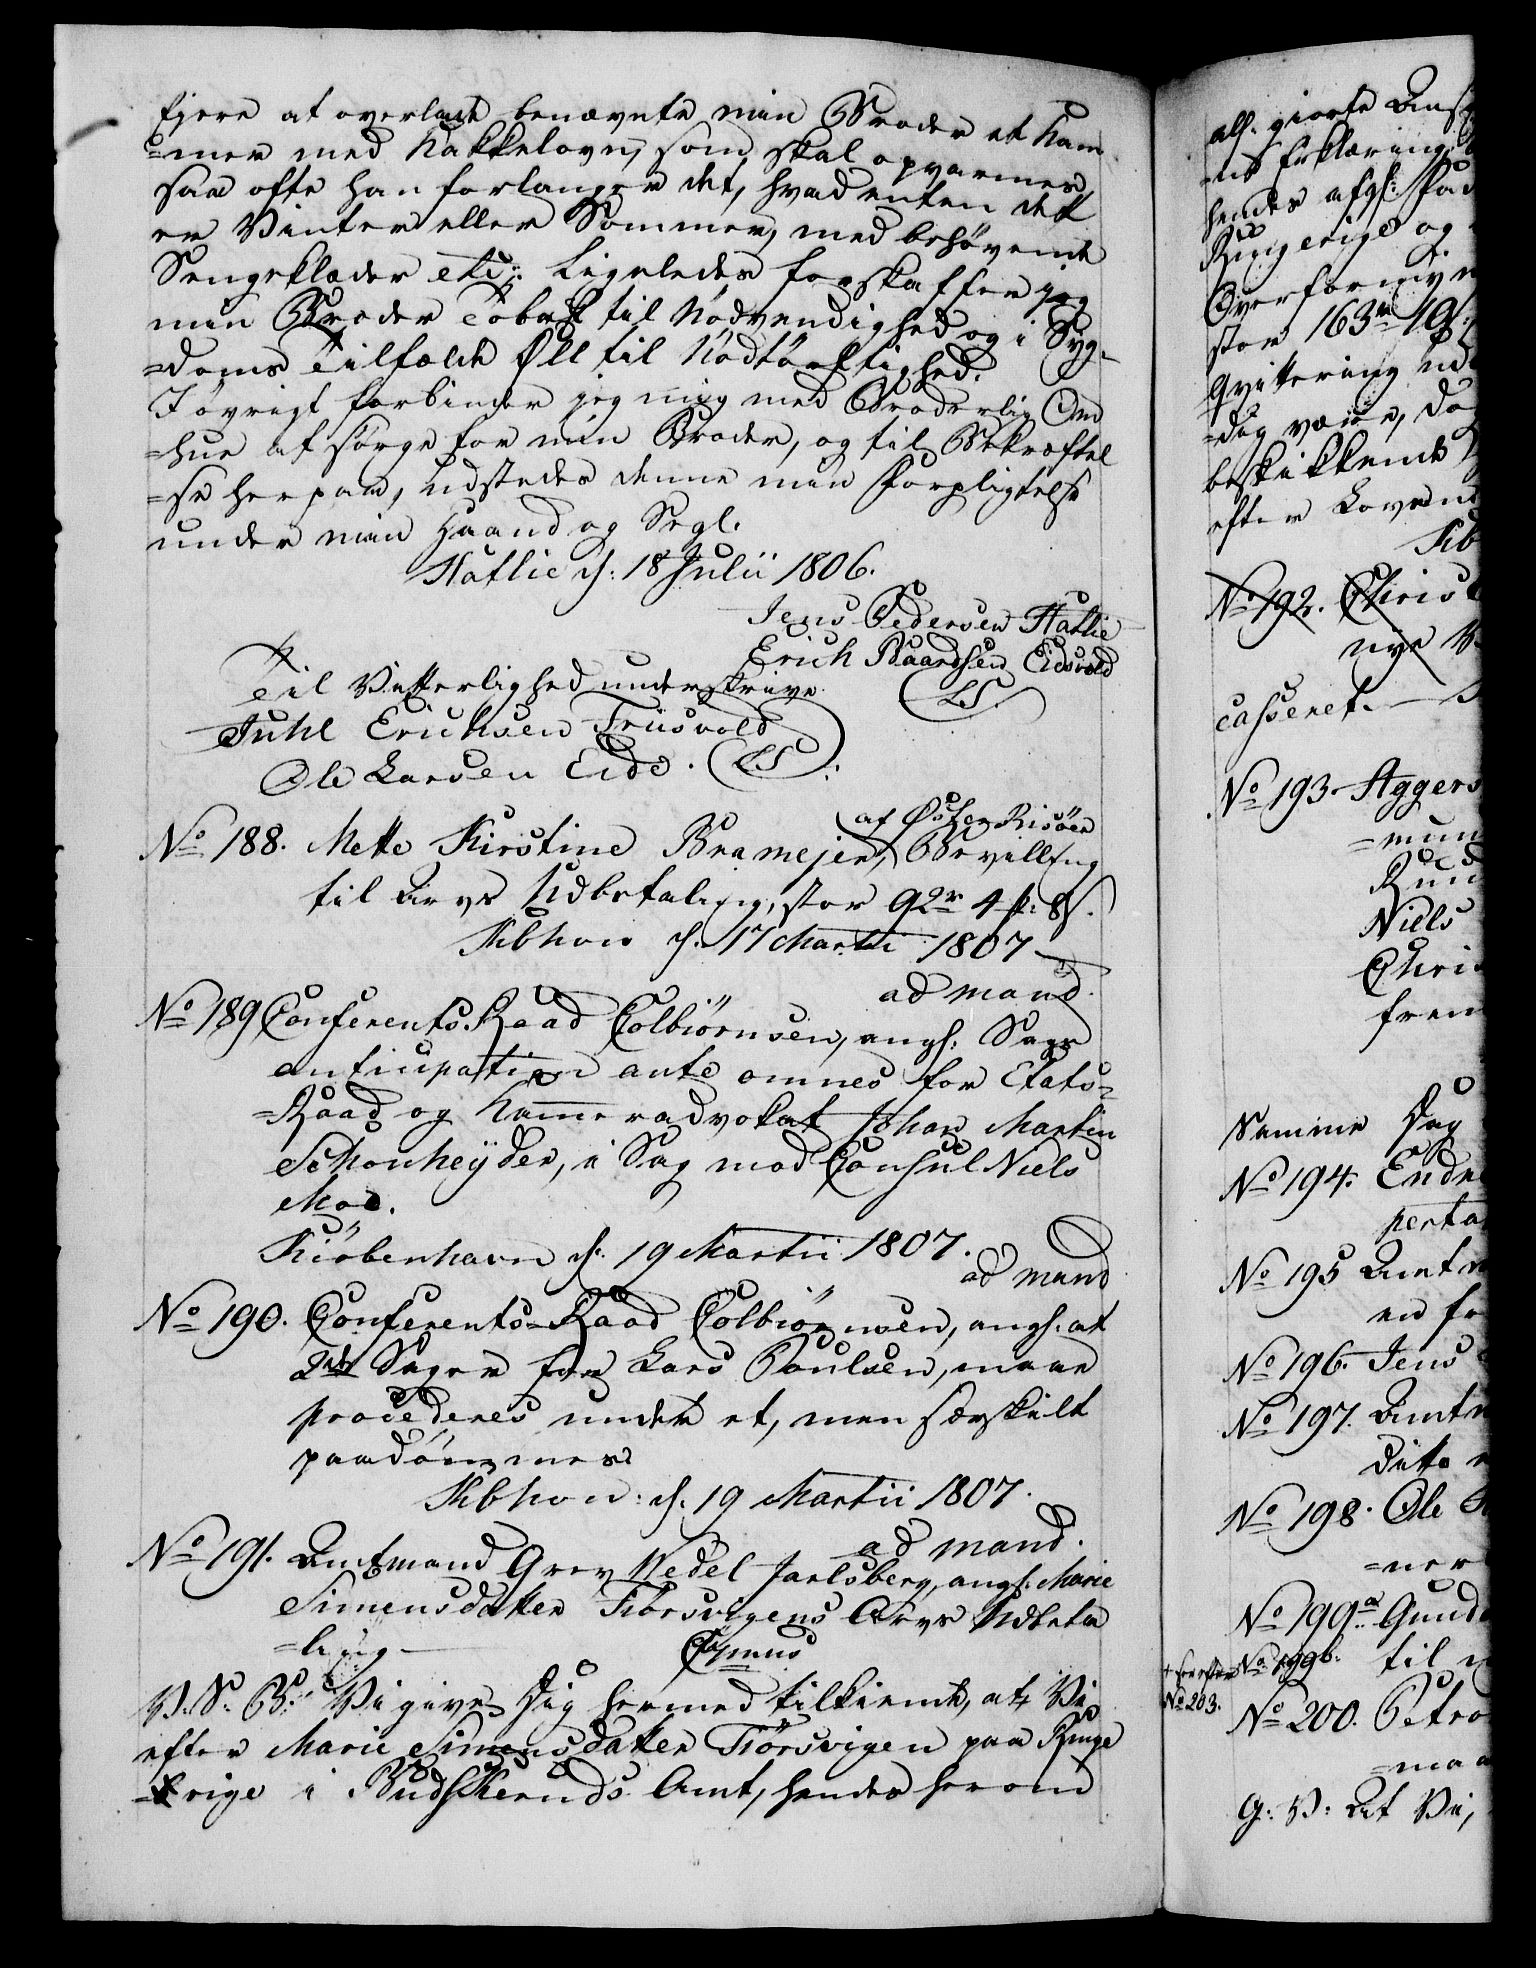 Ejere at overlade benævnte min Broder et Kam
=mer med Kakkelovn, som skal opvarmes,
saa ofte han forlanger det, hvad enten det
er Vinter eller Sommer, med behøvende
Sengeklæder etc: Ligeledes forskaffer jeg
min Broder Tobak til Nødvendighed og i Syg-
=doms Tilfælde Øll til Nødtørftighed.
I øvrigt forbinder jeg mig med Broderlig Om
=hue at sørge for min Broder, og til Bekræftel
=se herpaa, udstedes denne min Forpligtelse
under min Haand og Segl.
Hatlie d: 18 Julii 1806.
Jens Pedersen Hatlie
Erich Baardsen Eidsvold
Til Vitterlighed underskrive
(LS.)
Juhl Erichsen Friisvold
Ole Larsen Eide. (LS):
af Øster Riisöer
No 188. Mette Kirstine Bramejer, Bevilling
til Arvs Udbetaling, stor 92r 4 ß: 8 s.
Kbhavn d: 17 Martii 1807
ad mand.
No 189 Conferents Raad Colbiørnsen, angl: Sags
anticipation ante omnes for Etats=
=Raad og Kammeradvokat Johan Martin
Schønheyder, i Sag mod Consul Niels
Moe.
Kiöbenhavn d: 19 Martii 1807.
ad mand
No 190. Conferents-Raad Colbiörnsen, angl. at
2de Sager for Lars Poulsen, maae
procederes under et, men særskilt
paadömmes
Kbhavn: d. 19 Martii 1807.
ad mand.
No 191. Amtmand Grev Wedel Jarlsberg, angl. Marie
Simensdatter Tiörsvigens Arvs Udbeta
=ling
V. S. B: Vi give Dig hermed tilkiende, at Vi
efter Marie Simensdatter Tiörsvigen paa Ringe
=rige i Budskeruds Amt, hendes herom
all: giorte Ans
=ns Erklæring
hendes afgl: Fad
Ringerige og
Overformyn
stor 163 r 19 s
Qvittering ud
=dig være, do
beskikkende
efter Loven
Kb
No 192. Chris
nye
casseret.
No 193. Aggers
=mun
Niels
Chris
frem
Samme Dag
No 194. Endr
perta
No 195 Amtm
en fo
No 196. Jens
No 197. Amtm
Dito
No 198. Ole
=ner
No 199a Gund
+ see efter
No 203.
No 199b. til
No 200. Petro
=maa
G: V: At Vi,